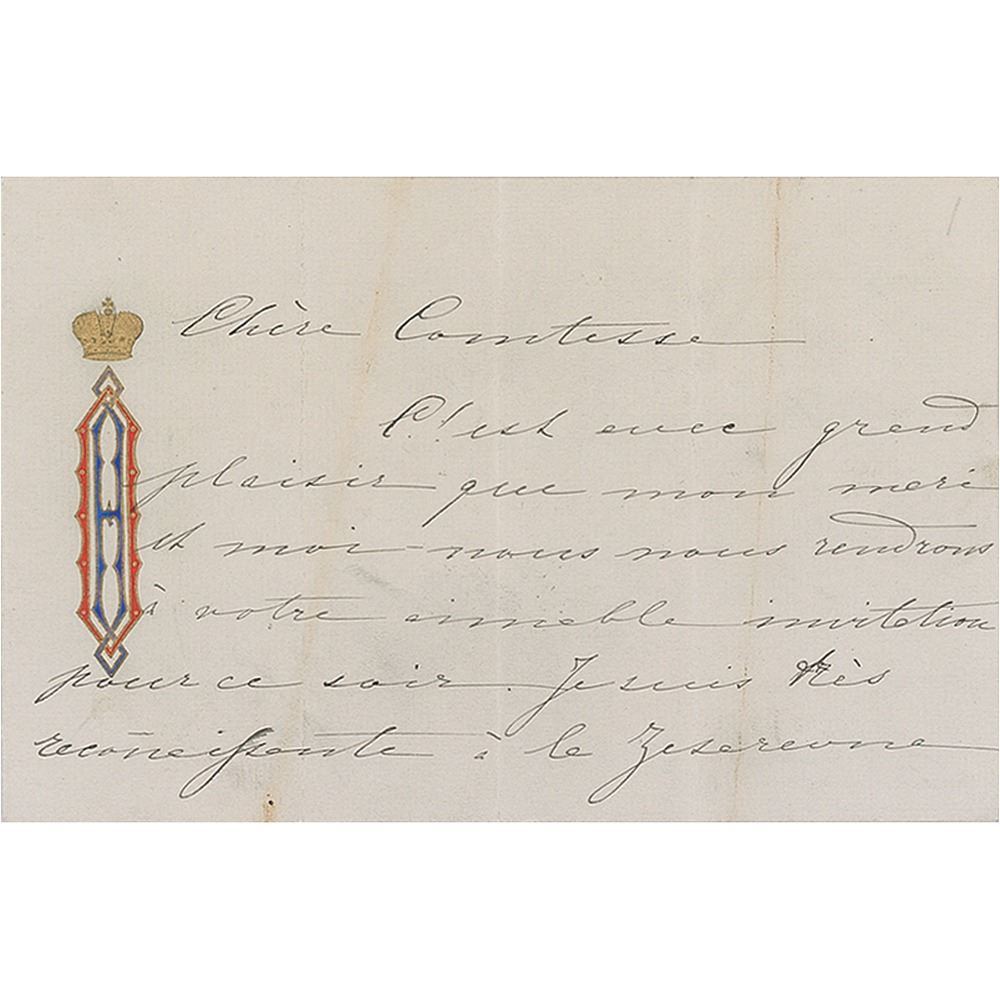 Chère Comtesse
C'est avec grand
plaisir que mon mari
et moi nous nous rendrons
à votre aimable invitation
pour ce soir. Je suis très
reconnaissante à la Zesarevna